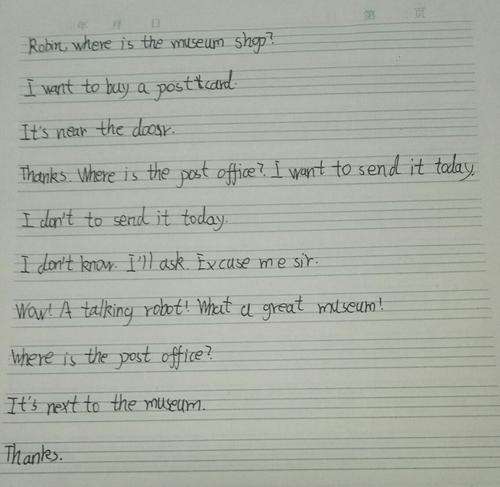 年 月 日 第 页
Robin, where is the museum shop?
I want to buy a posttcard.
It's near the doosr.
Thanks. Where is the post office?. I want to send it today,
I don't to send it today.
I don't know. I'll ask. Excuse me sir.
Wow! A talking robot! What a great museum!
Where is the post office?
It's next to the museum.
Thanks.